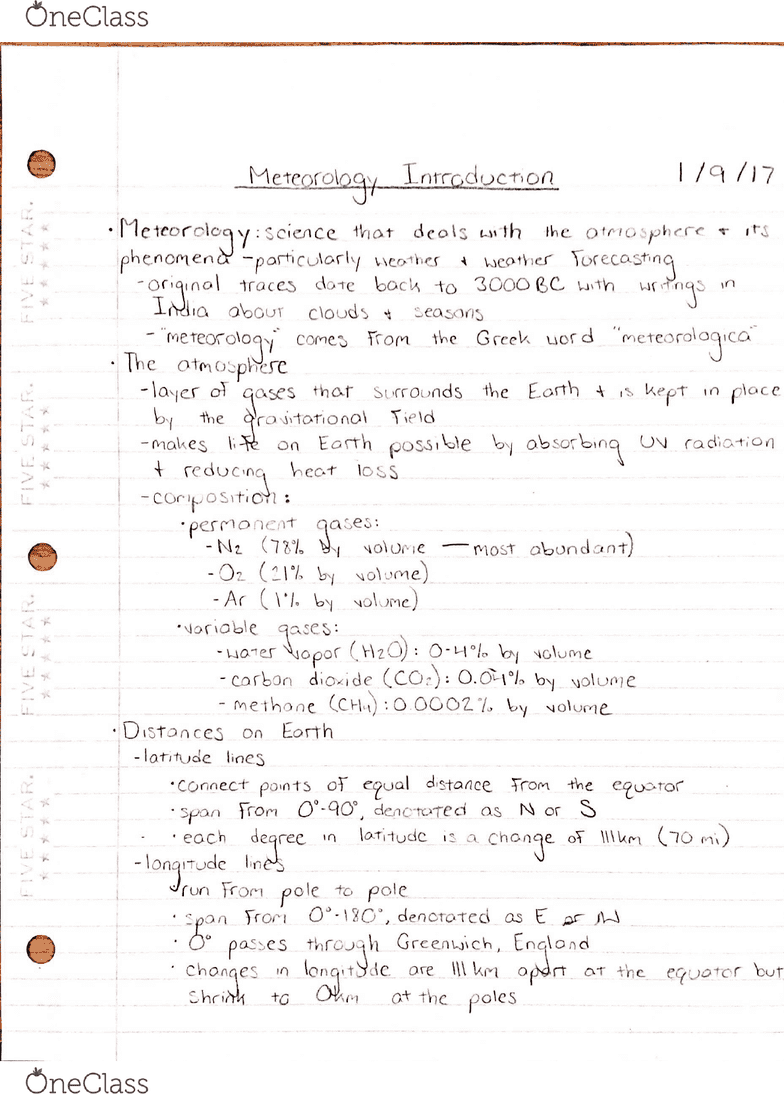 OneClass
Meteorology Introduction 1/9/17
· Meteorology: science that deals with the atmosphere + its
phenomena - particularly weather + weather forecasting
- original traces date back to 3000 BC with writings in
India about clouds + seasons
- "meteorology" comes from the Greek word "meteorologica"
· The atmosphere
- layer of gases that surrounds the Earth + is kept in place
by the gravitational field
- makes life on Earth possible by absorbing UV radiation
+ reducing heat loss
- composition:
· permanent gases:
- N2 (78% by volume — most abundant)
- O2 (21% by volume)
- Ar (1% by volume)
· variable gases:
- water vapor (H2O): 0-4% by volume
- carbon dioxide (CO2): 0.041% by volume
- methane (CH4): 0.0002% by volume
· Distances on Earth
- latitude lines
· connect points of equal distance from the equator
· span from 0°-90°, denotated as N or S
· each degree in latitude is a change of 111km (70 mi)
- longitude lines
· run from pole to pole
· span from 0°-180°, denotated as E or W
· 0° passes through Greenwich, England
· changes in longitude are 111 km apart at the equator but
shrink to 0km at the poles
FIVE STAR.
FIVE STAR.
FIVE STAR.
FIVE STAR.
OneClass